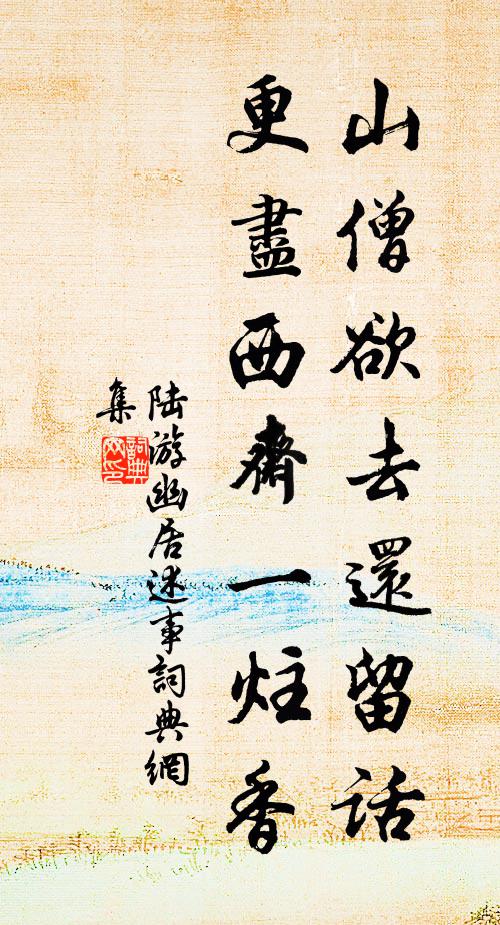 山僧欲去還留話
更盡西齋一炷香
陸游幽居述事詞典網
集
詞典
网印